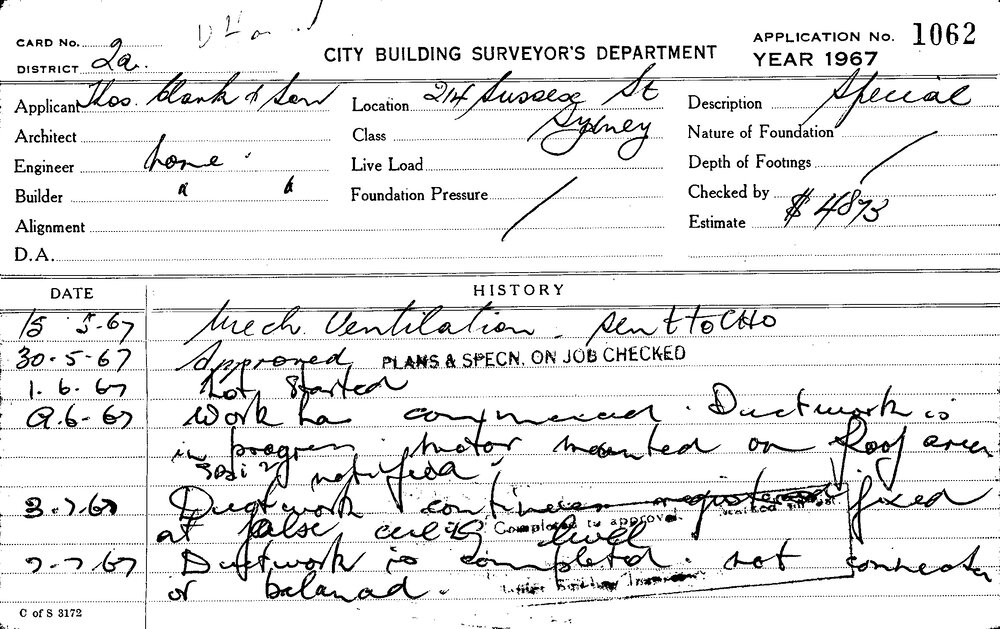 CARD No. 2a.
DISTRICT
CITY BUILDING SURVEYOR'S DEPARTMENT
APPLICATION No. 1062
YEAR 1967
Applicant Thos. Clark & Son
Location 214 Sussex St
Sydney
Description Special
Architect
Class
Nature of Foundation
Engineer none.
Live Load
Depth of Footings
Builder " "
Foundation Pressure
Checked by
Alignment
Estimate $4873
D.A.
DATE HISTORY
15 5-67 Mech. Ventilation - Sent to CHO
30-5-67 Approved PLANS & SPECN. ON JOB CHECKED
1.6.67 Not Started
9.6-67 Work has commenced. Ductwork is
in progress. Motor mounted on Roof area
notified.
3.7.67 Ductwork continues registers fixed
at false ceiling level
Completed to approval.
7-7.67 Ductwork is completed. not connected
or balanced.
C of S 3172